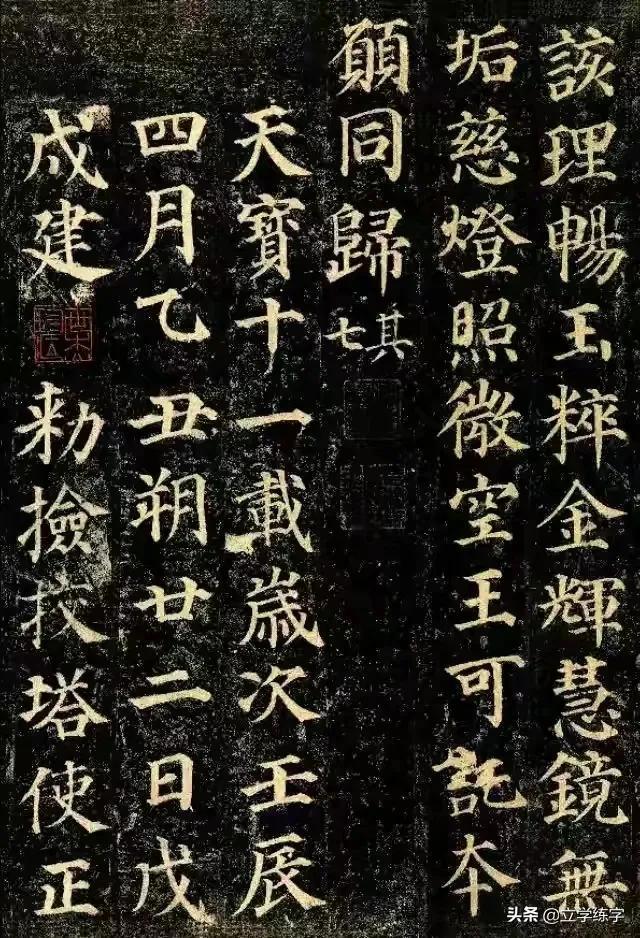 該理暢玉粹金輝慧鏡無
垢慈燈照微空王可託夲
願同歸其七
天寶十一載歲次壬辰
四月乙丑朔廿二日戊
戌建 勑撿挍塔使正
头条 @立学练字